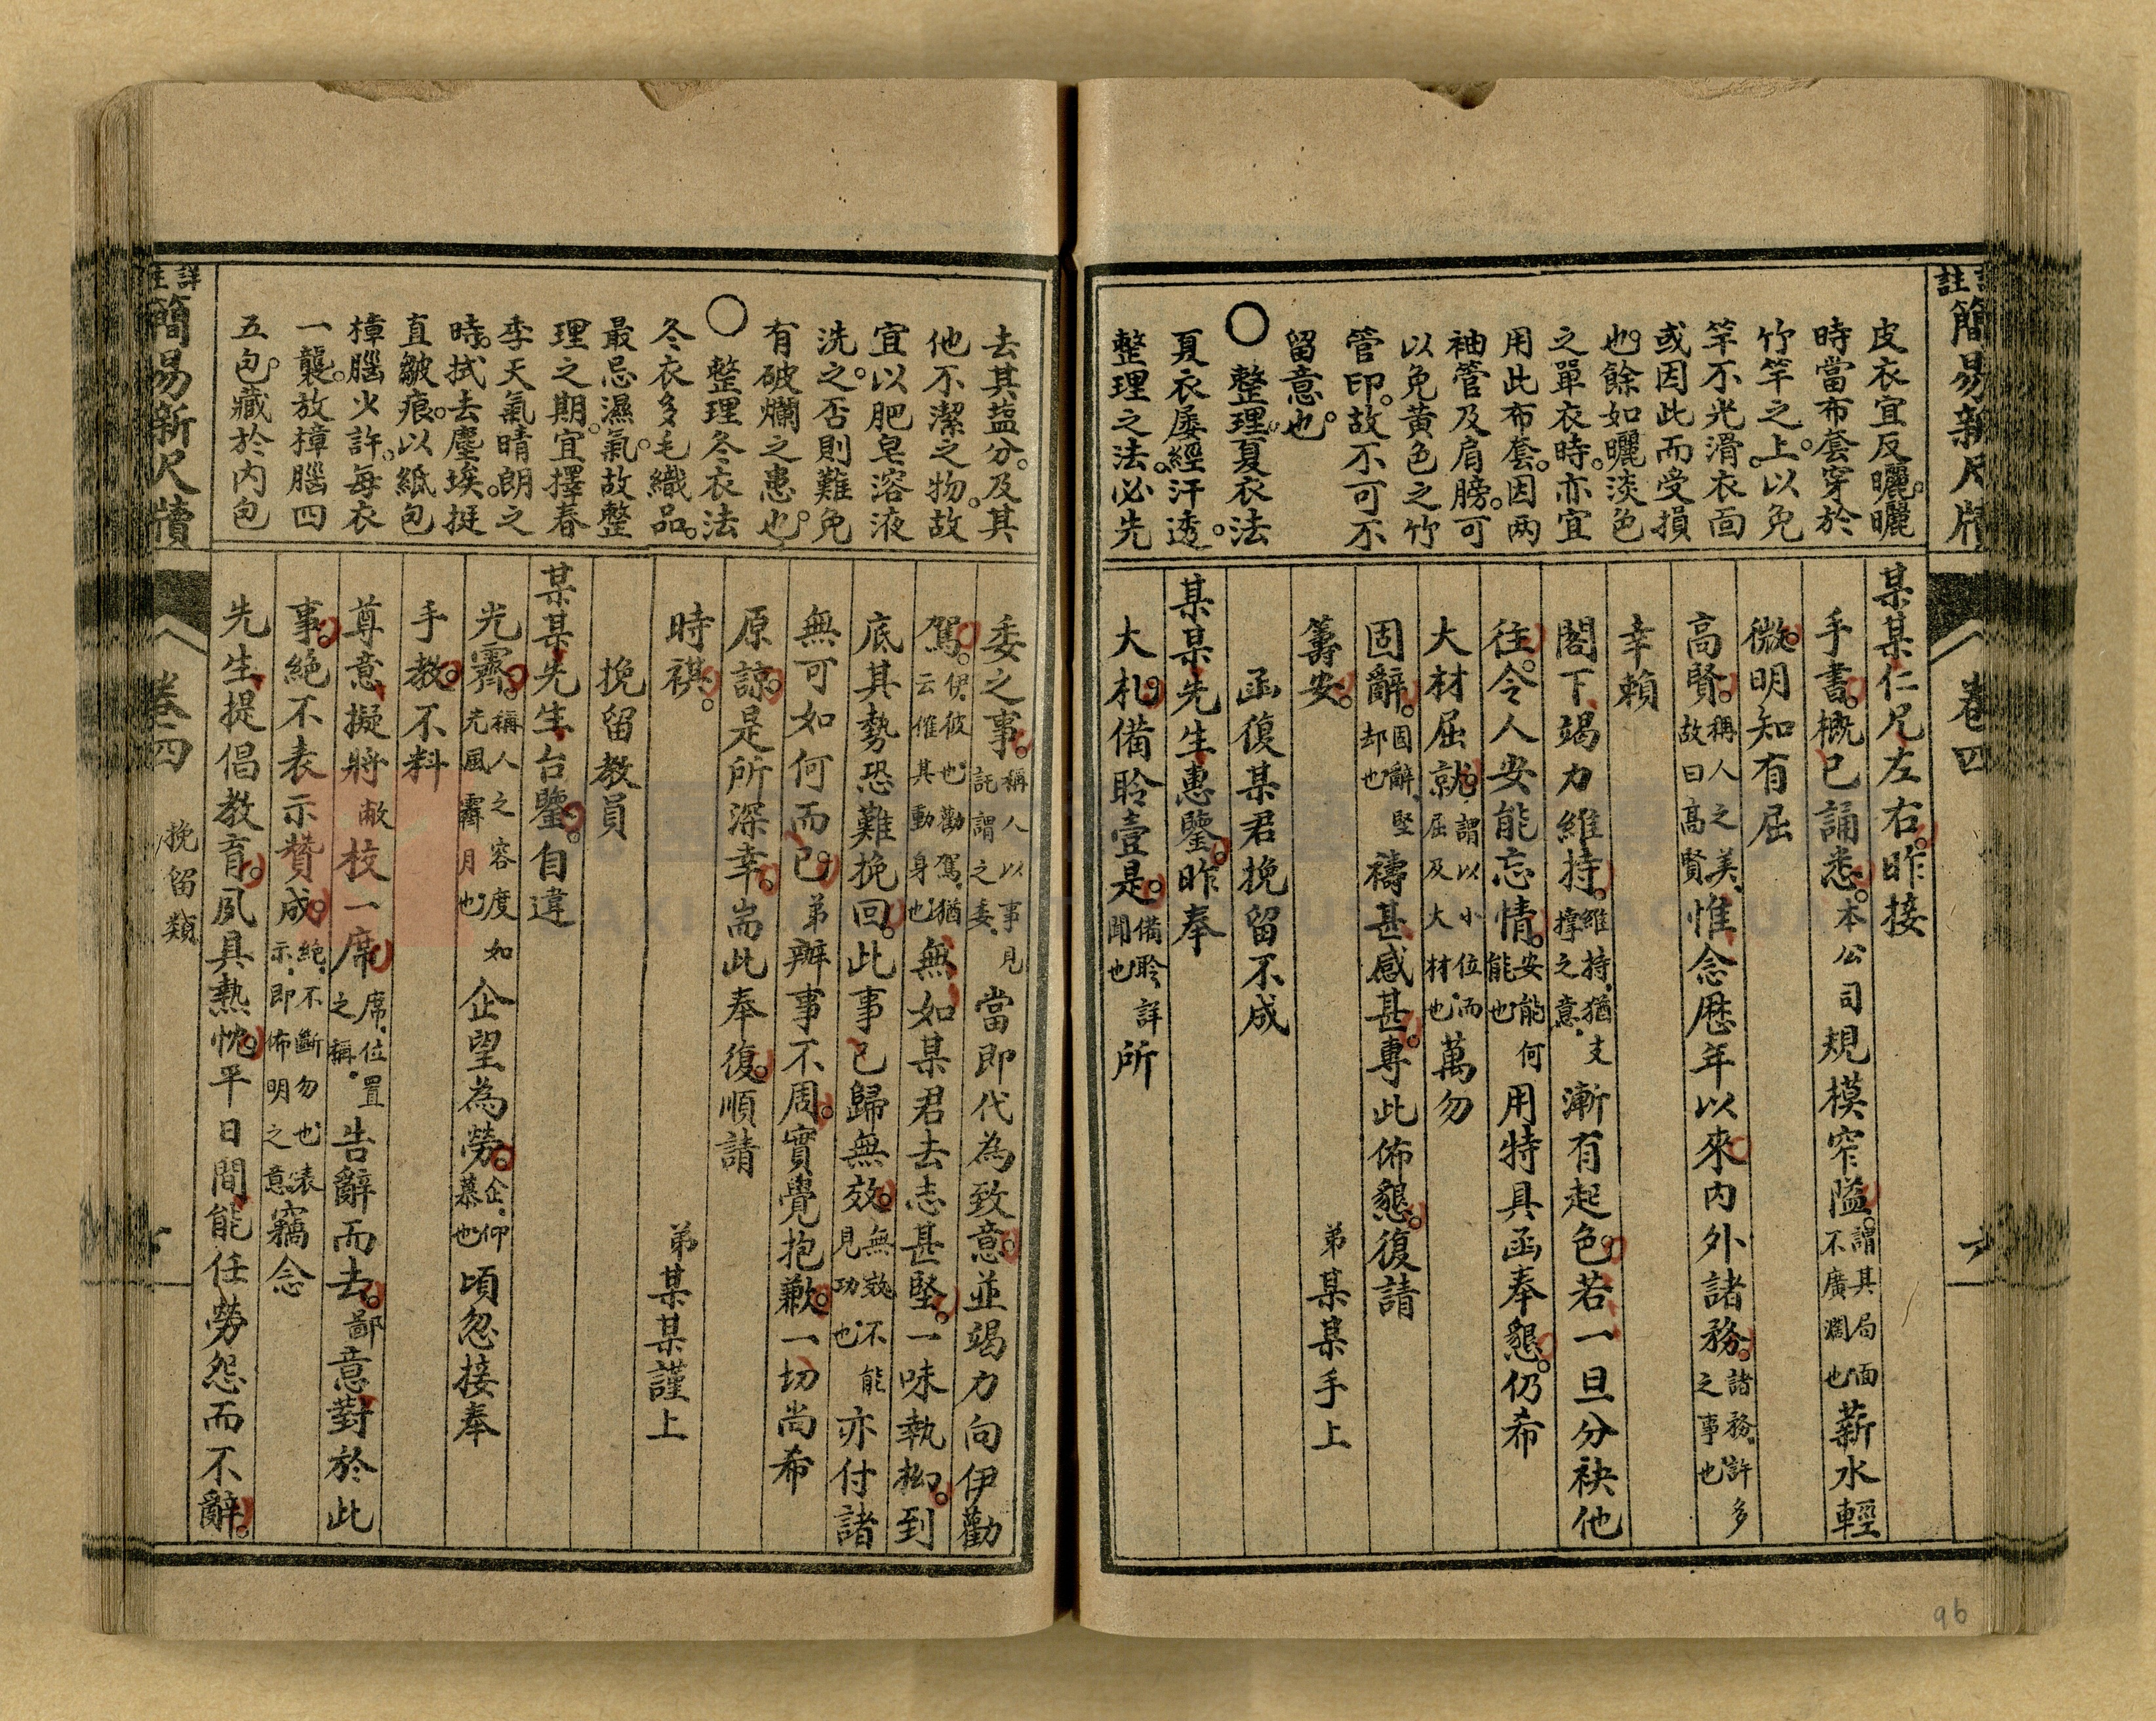 註簡易新尺牘
卷四
皮衣宜反曬。曬
時當布套穿於
竹竿之上。以免
竿不光滑。衣面
或因此而受損
也。餘如曬淡色
之單衣時。亦宜
用此布套。因两
袖管及肩膀。可
以免黄色之竹
管印。故不可不
留意也。
○整理夏衣法
夏衣屡經汗透。
整理之法。必先
某某仁兄左右。昨接
手書。概已誦悉。本公司規模窄隘。謂其局面不廣濶也薪水輕
微。明知有屈
高賢。稱人之美。故曰高賢惟念歷年以來内外諸務。諸務。許多之事也
幸賴
閣下竭力維持。維持。猶支撐之意。漸有起色。若一旦分袂他
往。令人安能忘情。安能何能也用特具函奉懇。仍希
大材屈就。謂以小位而屈及大材也萬勿
固辭。固辭。堅却也禱甚感甚。專此佈懇。復請
籌安。　弟某某手上
函復某君挽留不成
某某先生惠鑒。昨奉
大札。備聆壹是。備聆。詳聞也所
去其塩分。及其
他不潔之物。故
宜以肥皂溶液
洗之。否則難免
有破爛之患也。
○整理冬衣法
冬衣多毛織品。
最忌濕氣。故整
理之期。宜擇春
季天氣晴朗之
時。拭去塵埃。挺
直皺痕。以紙包
樟腦火許。每衣
一襲。放樟腦四
五包。藏於内包
委之事。稱人以事見託謂之委。當即代為致意。並竭力向伊勸
駕。伊彼也。勸駕。猶云催其動身也無如某君去志甚堅。一味執拗。到
底其勢恐難挽回。此事已歸無效。無效。不能見功也亦付諸
無可如何而已。弟辦事不周。實覺抱歉。一切尚希
原諒。是所深幸。耑此奉復。順請
時祺。　弟某某謹上
挽留教員
某某先生台鑒。自違
光霽。稱人之容度如光風霽月也企望為勞。企。仰慕也頃忽接奉
手教。不料
尊意擬將敝校一席席。位置之稱。告辭而去。鄙意對於此
事。絶不表示贊成。絶。不斷勿也表示。即佈明之意竊念
先生提倡教育。夙具熱忱。平日間能任勞怨而不辭。
詳註簡易新尺牘
卷四　挽留類
96